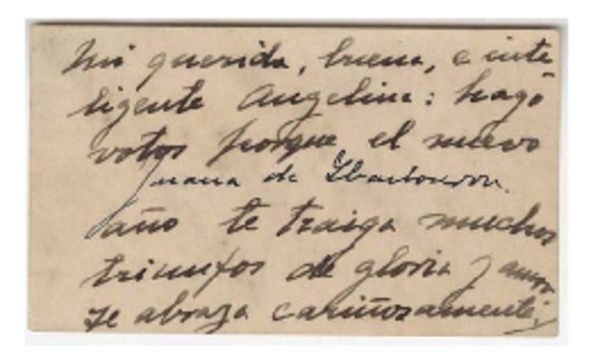 Mi querida, buena, e inte
ligente Angelina: hago
votos porque el nuevo
Juana de Ibarbourou.
año te traiga muchos
triunfos de gloria y amor
Te abraza cariñosamente;